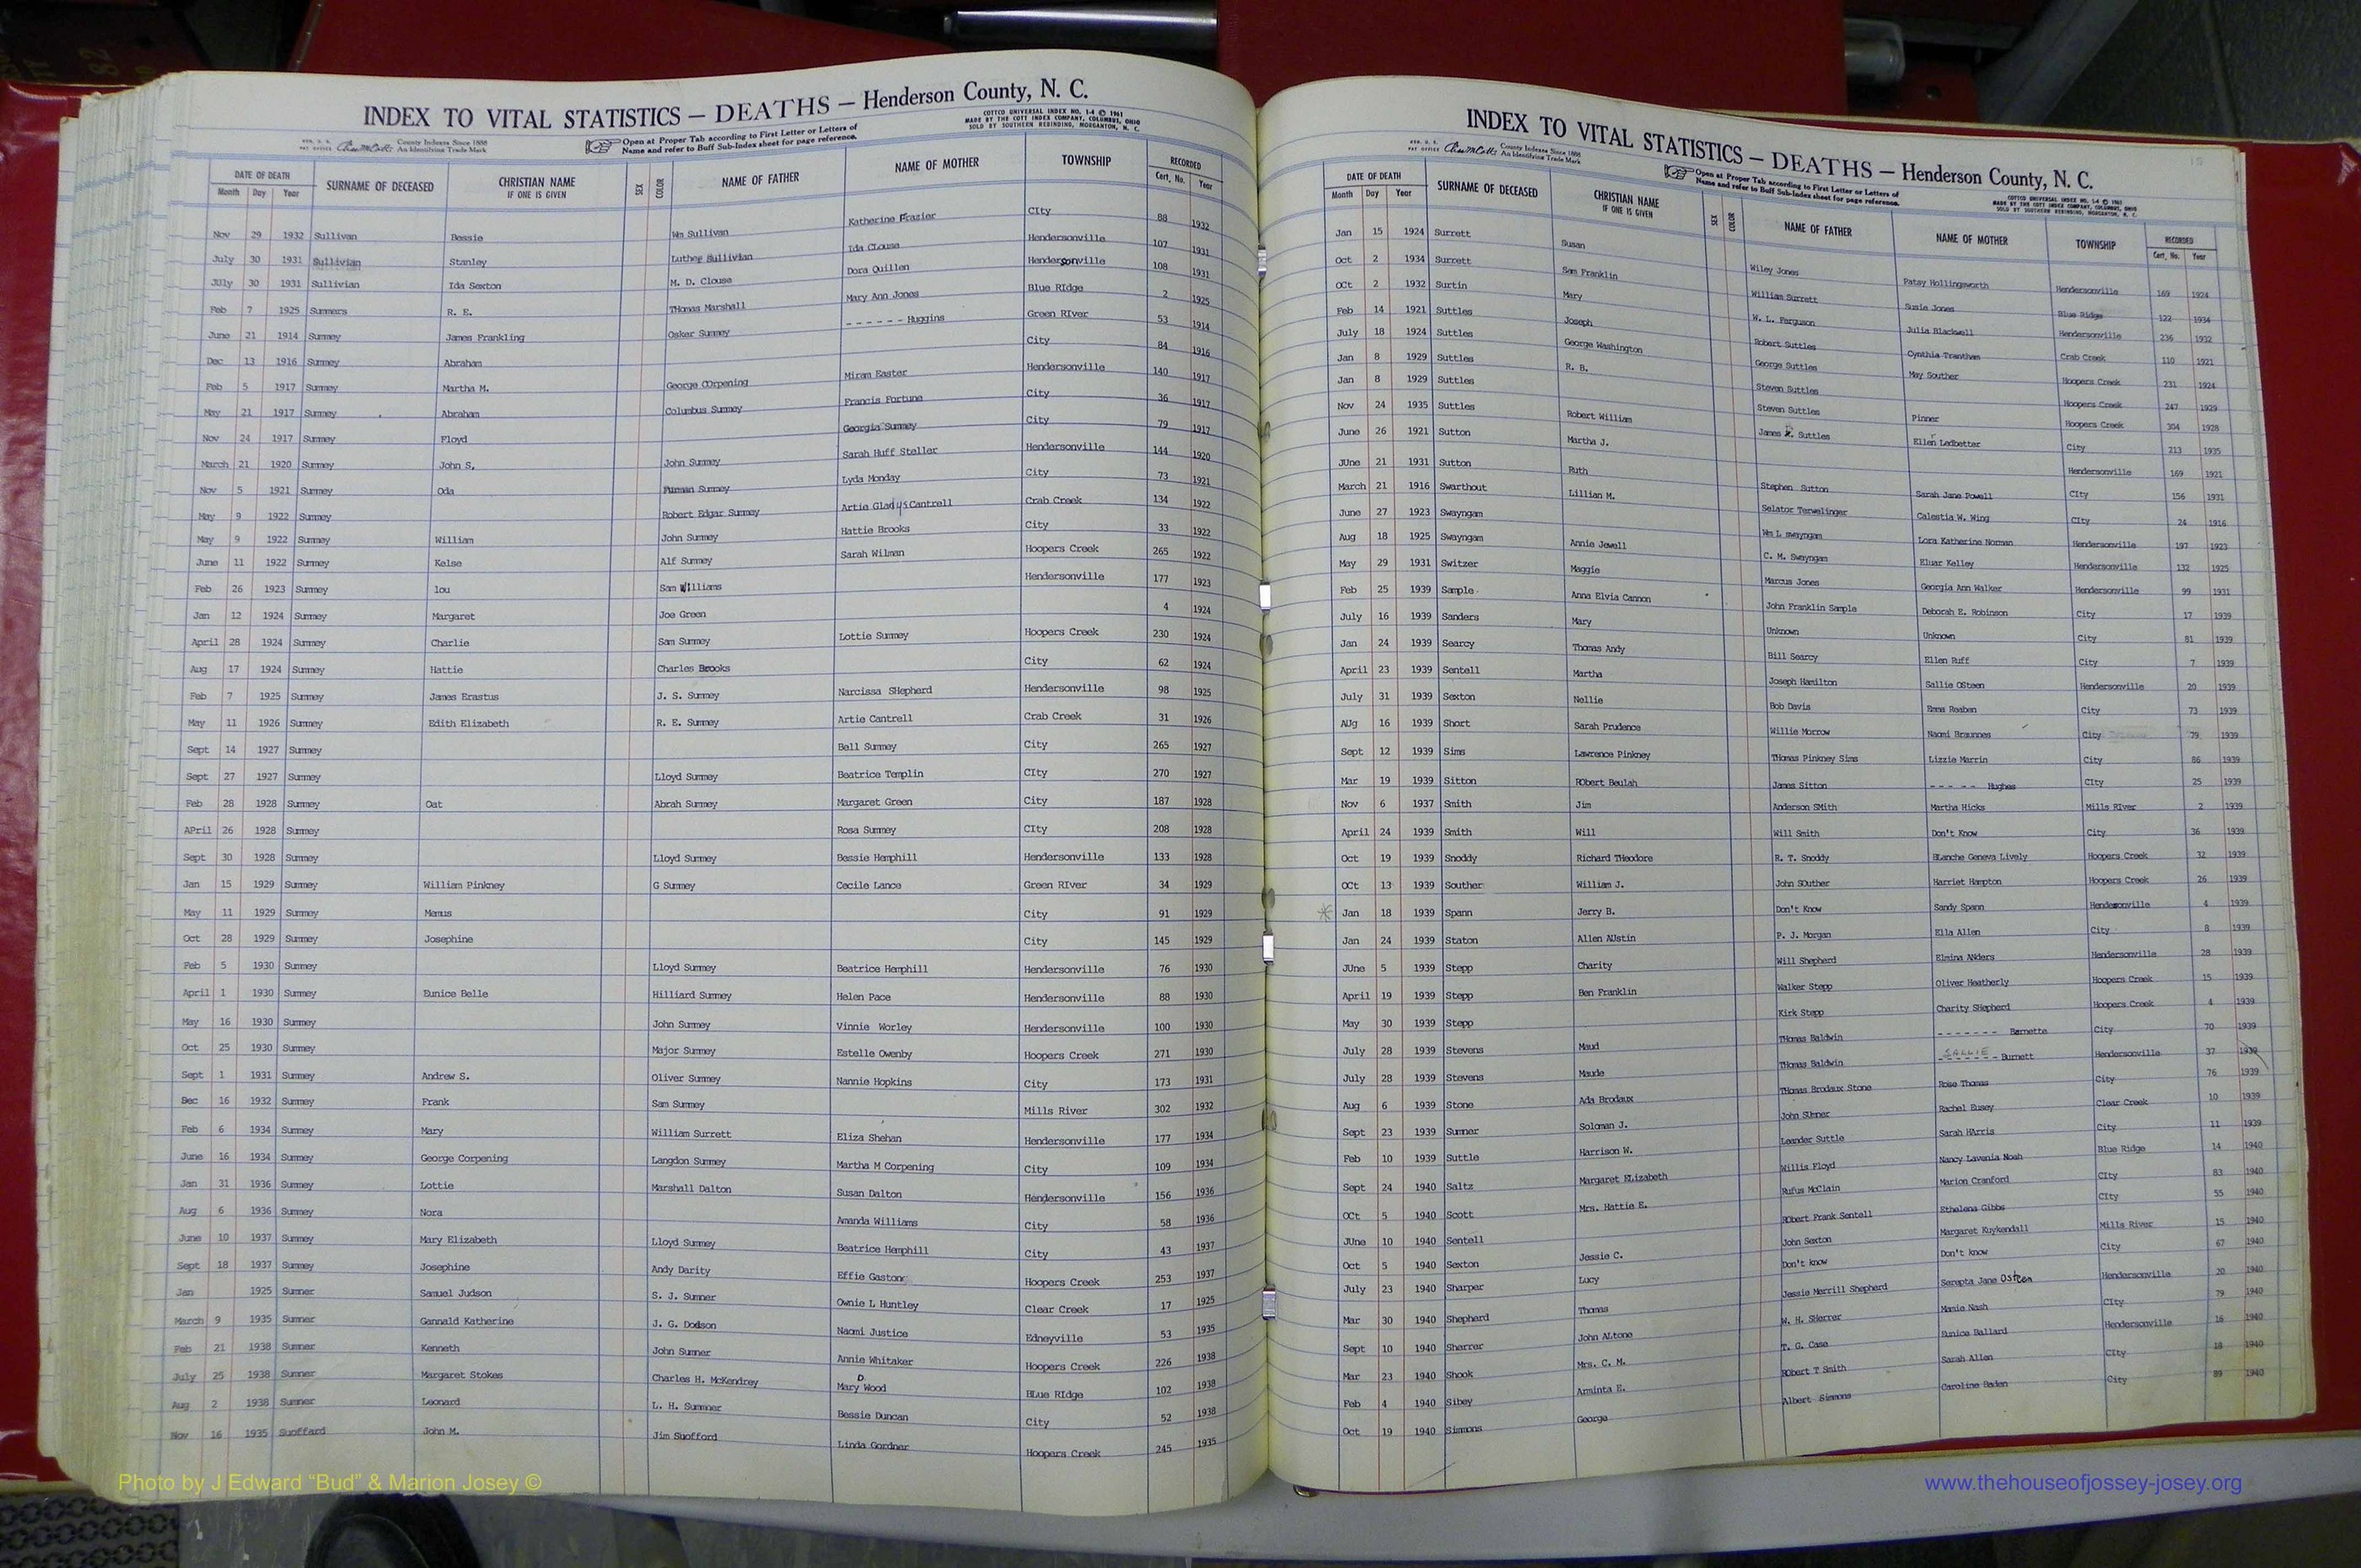 INDEX TO VITAL STATISTICS — DEATHS — Henderson County, N. C.
COTTCO UNIVERSAL INDEX NO. 1-4 © 1961
MADE BY THE COTT INDEX COMPANY, COLUMBUS, OHIO
SOLD BY SOUTHERN REBINDING, MORGANTON, N. C.
County Indexes Since 1888
An Identifying Trade Mark
Open at Proper Tab according to First Letter or Letters of
Name and refer to Buff Sub-Index sheet for page reference.
DATE OF DEATH Month Day Year SURNAME OF DECEASED CHRISTIAN NAME IF ONE IS GIVEN SEX COLOR NAME OF FATHER NAME OF MOTHER TOWNSHIP RECORDED Cert. No. Year
Nov 29 1932 Sullivan Bessie Wm Sullivan Katherine Frazier CIty 88 1932
July 30 1931 Sullivian Stanley Luther Sullivian Ida Clouse Hendersonville 107 1931
JUly 30 1931 Sullivian Ida Sexton M. D. Clouse Dora Quillen Hendersonville 108 1931
Feb 7 1925 Summers R. E. THomas Marshall Mary Ann Jones Blue RIdge 2 1925
June 21 1914 Summey James Frankling Osker Summey - - - - - - Huggins Green RIver 53 1914
Dec 13 1916 Summey Abraham City 84 1916
Feb 5 1917 Summey Martha M. George COrpening Miram Easter Hendersonville 140 1917
May 21 1917 Summey Abraham Columbus Summey Francis Fortune City 36 1917
Nov 24 1917 Summey Floyd Georgia Summey City 79 1917
March 21 1920 Summey John S. John Summey Sarah Huff Steller Hendersonville 144 1920
Nov 5 1921 Summey Oda Furman Summey Lyda Monday City 73 1921
May 9 1922 Summey Robert Edgar Summey Artie Gladys Cantrell Crab Creek 134 1922
May 9 1922 Summey William John Summey Hattie Brooks City 33 1922
June 11 1922 Summey Kelse Alf Summey Sarah Wilman Hoopers Creek 265 1922
Feb 26 1923 Summey lou Sam Williams Hendersonville 177 1923
Jan 12 1924 Summey Margaret Joe Green 4 1924
April 28 1924 Summey Charlie Sam Summey Lottie Summey Hoopers Creek 230 1924
Aug 17 1924 Summey Hattie Charles Brooks City 62 1924
Feb 7 1925 Summey James Erastus J. S. Summey Narcissa SHepherd Hendersonville 98 1925
May 11 1926 Summey Edith Elizabeth R. E. Summey Artie Cantrell Crab Creek 31 1926
Sept 14 1927 Summey Bell Summey City 265 1927
Sept 27 1927 Summey Lloyd Summey Beatrice Templin CIty 270 1927
Feb 28 1928 Summey Oat Abrah Summey Margaret Green City 187 1928
APril 26 1928 Summey Rosa Summey CIty 208 1928
Sept 30 1928 Summey Lloyd Summey Bessie Hemphill Hendersonville 133 1928
Jan 15 1929 Summey William Pinkney G Summey Cecile Lance Green RIver 34 1929
May 11 1929 Summey Memus City 91 1929
Oct 28 1929 Summey Josephine City 145 1929
Feb 5 1930 Summey Lloyd Summey Beatrice Hemphill Hendersonville 76 1930
April 1 1930 Summey Eunice Belle Hilliard Summey Helen Pace Hendersonville 88 1930
May 16 1930 Summey John Summey Vinnie Worley Hendersonville 100 1930
Oct 25 1930 Summey Major Summey Estelle Owenby Hoopers Creek 271 1930
Sept 1 1931 Summey Andrew S. Oliver Summey Nannie Hopkins City 173 1931
Dec 16 1932 Summey Frank Sam Summey Mills River 302 1932
Feb 6 1934 Summey Mary William Surrett Eliza Shehan Hendersonville 177 1934
June 16 1934 Summey George Corpening Langdon Summey Martha M Corpening City 109 1934
Jan 31 1936 Summey Lottie Marshall Dalton Susan Dalton Hendersonville 156 1936
Aug 6 1936 Summey Nora Amanda Williams City 58 1936
June 10 1937 Summey Mary Elizabeth Lloyd Summey Beatrice Hemphill City 43 1937
Sept 18 1937 Summey Josephine Andy Darity Effie Gaston Hoopers Creek 253 1937
Jan 1925 Sumner Samuel Judson S. J. Sumner Ownie L Huntley Clear Creek 17 1925
March 9 1935 Sumner Gannald Katherine J. G. Dodson Naomi Justice Edneyville 53 1935
Feb 21 1938 Sumner Kenneth John Sumner Annie Whitaker Hoopers Creek 226 1938
July 25 1938 Sumner Margaret Stokes Charles H. McKendrey Mary D Wood BLue RIdge 102 1938
Aug 2 1938 Sumner Leonard L. H. Summner Bessie Duncan City 52 1938
Nov 16 1935 Suofford John M. Jim Suofford Linda Gordner Hoopers Creek 245 1935
Photo by J Edward “Bud” & Marion Josey ©
INDEX TO VITAL STATISTICS — DEATHS — Henderson County, N. C.
County Indexes Since 1888
An Identifying Trade Mark
Open at Proper Tab according to First Letter or Letters of
Name and refer to Buff Sub-Index sheet for page reference.
COTTCO UNIVERSAL INDEX NO. 1-4 © 1961
MADE BY THE COTT INDEX COMPANY, COLUMBUS, OHIO
SOLD BY SOUTHERN REBINDING, MORGANTON, N. C.
DATE OF DEATH Month Day Year SURNAME OF DECEASED CHRISTIAN NAME IF ONE IS GIVEN SEX COLOR NAME OF FATHER NAME OF MOTHER TOWNSHIP RECORDED Cert. No. Year
Jan 15 1924 Surrett Susan Wiley Jones Patsy Hollingsworth Hendersonville 169 1924
Oct 2 1934 Surrett Sam Franklin William Surrett Susie Jones Blue Ridge 122 1934
OCt 2 1932 Surtin Mary W. L. Ferguson Julia Blackwell Hendersonville 236 1932
Feb 14 1921 Suttles Joseph Robert Suttles Cynthia Trantham Crab Creek 110 1921
July 18 1924 Suttles George Washington George Suttles May Souther Hoopers Creek 231 1924
Jan 8 1929 Suttles R. B. Steven Suttles Hoopers Creek 247 1929
Jan 8 1929 Suttles Steven Suttles Pinner Hoopers Creek 304 1928
Nov 24 1935 Suttles Robert William James R. Suttles Ellen Ledbetter City 213 1935
June 26 1921 Sutton Martha J. Hendersonville 169 1921
JUne 21 1931 Sutton Ruth Stephen Sutton Sarah Jane Powell CIty 156 1931
March 21 1916 Swarthout Lillian M. Selator Terwelinger Calestia W. Wing CIty 24 1916
June 27 1923 Swayngam Wm L swayngam Lora Katherine Norman Hendersonville 197 1923
Aug 18 1925 Swayngam Annie Jewell C. M. Swayngam Eluar Kelley Hendersonville 132 1925
May 29 1931 Switzer Maggie Marcus Jones Georgia Ann Walker Hendersonville 99 1931
Feb 25 1939 Sample Anna Elvia Cannon John Franklin Sample Deborah E. Robinson City 17 1939
July 16 1939 Sanders Mary Unknown Unknown City 81 1939
Jan 24 1939 Searcy Thomas Andy Bill Searcy Ellen Ruff City 7 1939
April 23 1939 Sentell Martha Joseph Hamilton Sallie OSteen Hendersonville 20 1939
July 31 1939 Sexton Nellie Bob Davis Emma Reaben City 73 1939
AUg 16 1939 Short Sarah Prudence Willie Morrow Naomi Braunnes City 79 1939
Sept 12 1939 Sims Lawrence Pinkney THomas Pinkney Sims Lizzie Marrin City 86 1939
Mar 19 1939 Sitton RObert Beulah James Sitton - - - - - Hughes CIty 25 1939
Nov 6 1937 Smith Jim Anderson SMith Martha Hicks Mills RIver 2 1939
April 24 1939 Smith Will Will Smith Don't Know City 36 1939
Oct 19 1939 Snoddy Richard THeodore R. T. Snoddy BLanche Geneva Lively Hoopers Creek 32 1939
OCt 13 1939 Souther William J. John SOuther Harriet Hampton Hoopers Creek 26 1939
* Jan 18 1939 Spann Jerry B. Don't Know Sandy Spann Hendersonville 4 1939
Jan 24 1939 Staton Allen AUstin P. J. Morgan Ella Allen City 8 1939
JUne 5 1939 Stepp Charity Will Shepherd Elmina ANders Hendersonville 28 1939
April 19 1939 Stepp Ben Franklin Walker Stepp Oliver Heatherly Hoopers Creek 15 1939
May 30 1939 Stepp Kirk Stepp Charity SHepherd Hoopers Creek 4 1939
July 28 1939 Stevens Maud THomas Baldwin - - - - - - - Barnette City 70 1939
July 28 1939 Stevens Maude THomas Baldwin SALLIE - - - - - - Burnett Hendersonville 37 1939
Aug 6 1939 Stone Ada Brodaux THomas Brodaux Stone Rose Thomas City 76 1939
Sept 23 1939 Sumner Soloman J. John SUmner Rachel Eusey Clear Creek 10 1939
Feb 10 1939 Suttle Harrison W. Leander Suttle Sarah HArris City 11 1939
Sept 24 1940 Saltz Margaret ELizabeth Willis Floyd Nancy Lavenia Noah Blue Ridge 14 1940
OCt 5 1940 Scott Mrs. Hattie E. Rufus McClain Marion Cranford CIty 83 1940
JUne 10 1940 Sentell RObert Frank Sentell Ethelena Gibbs CIty 55 1940
Oct 5 1940 Sexton Jessie C. John Sexton Margaret Kuykendall Mills River 15 1940
July 23 1940 Sharper Lucy Don't know Don't know City 67 1940
Mar 30 1940 Shepherd Thomas Jessie Merrill Shepherd Serepta Jane Osteen Hendersonville 20 1940
Sept 10 1940 Sherrer John ALtone W. H. SHerrer Mamie Nash CIty 79 1940
Mar 23 1940 Shook Mrs. C. M. T. G. Case Eunice Ballard Hendersonville 16 1940
Feb 4 1940 Sibey Arminta E. RObert T Smith Sarah Allen CIty 18 1940
Oct 19 1940 Simmons George Albert Simmons Caroline Baden City 89 1940
www.thehouseofjossey-josey.org